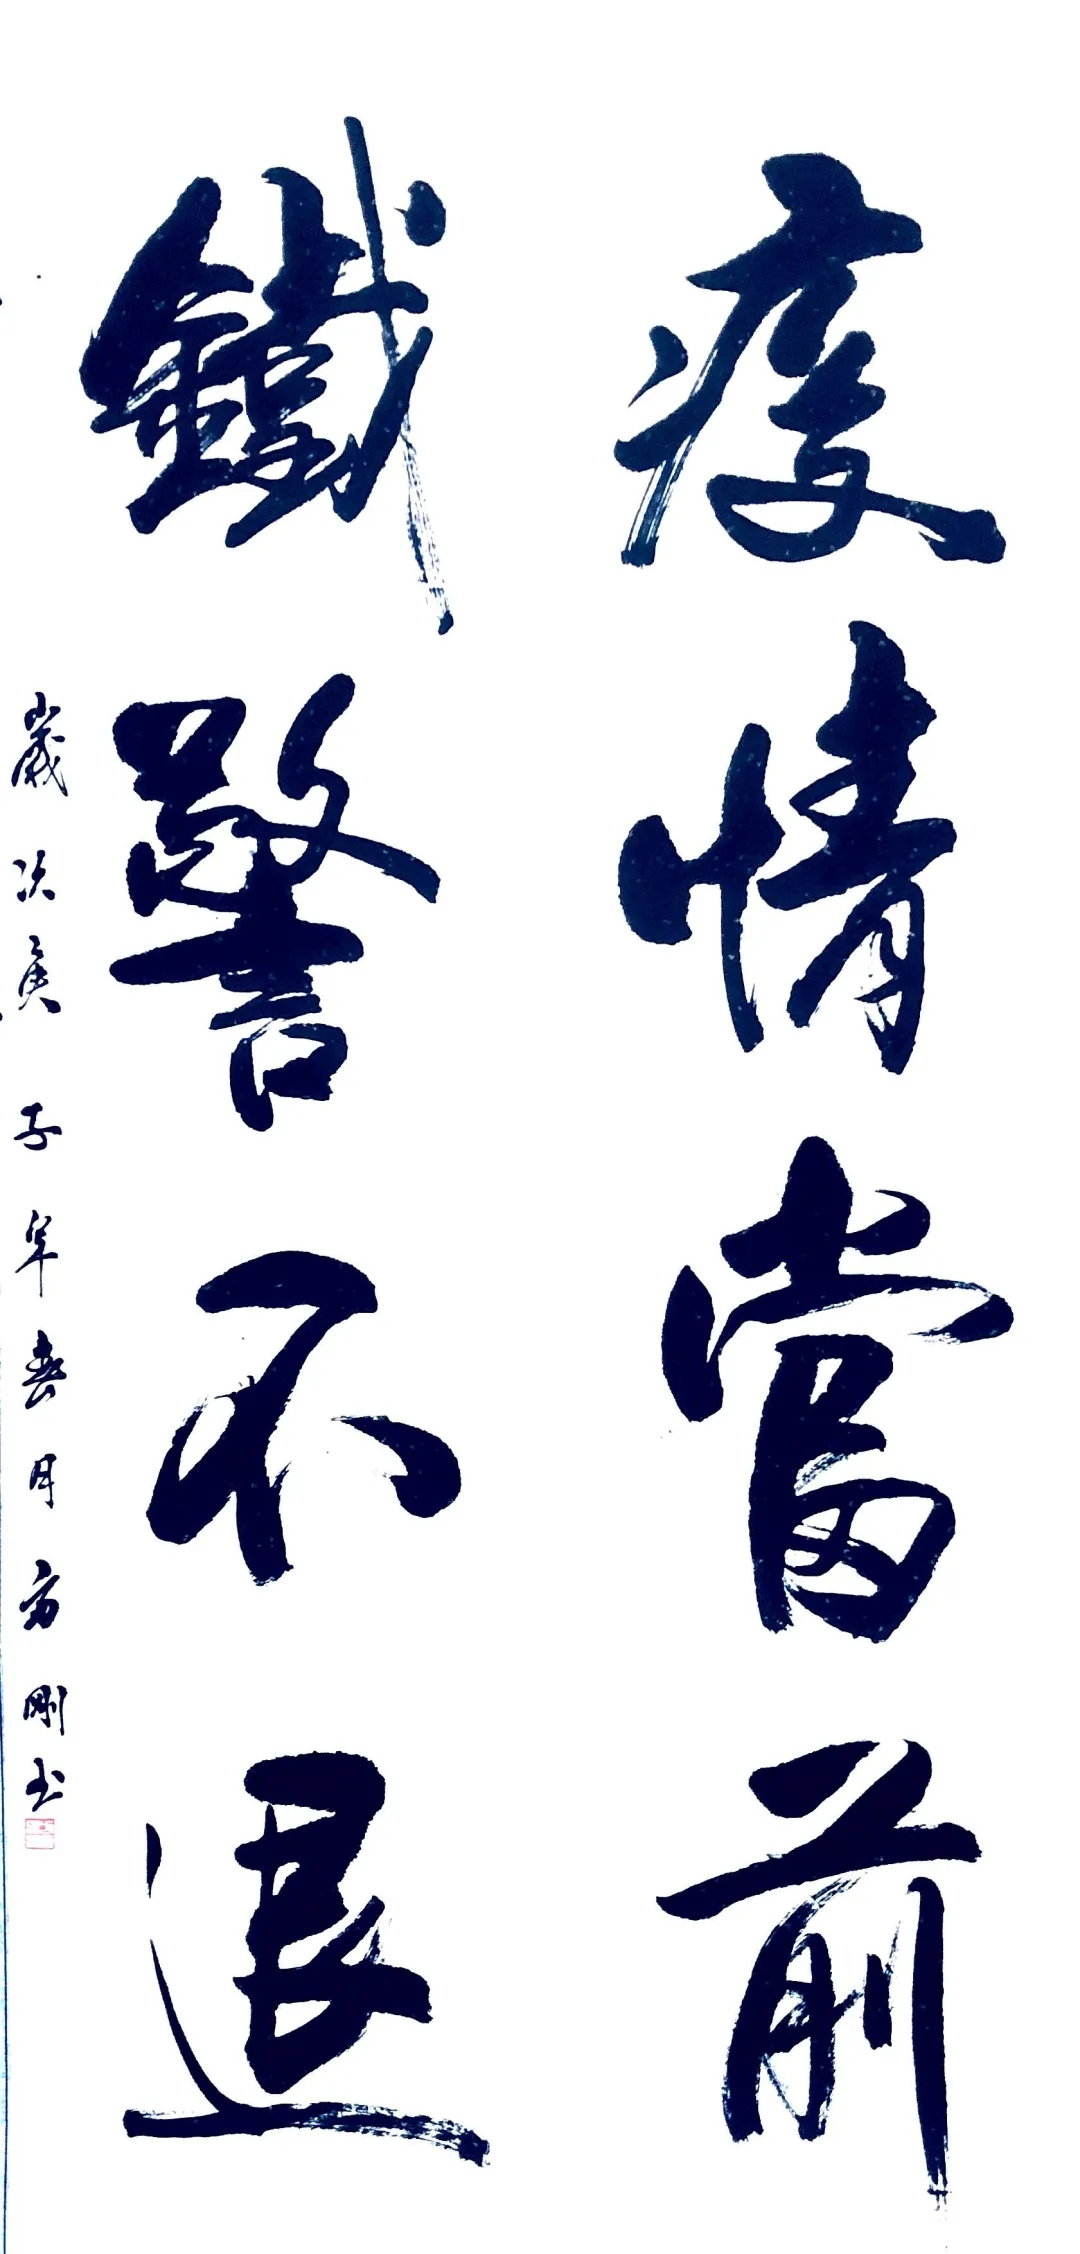 疫情當前
鐵警不退
歲次庚子年春月方剛书